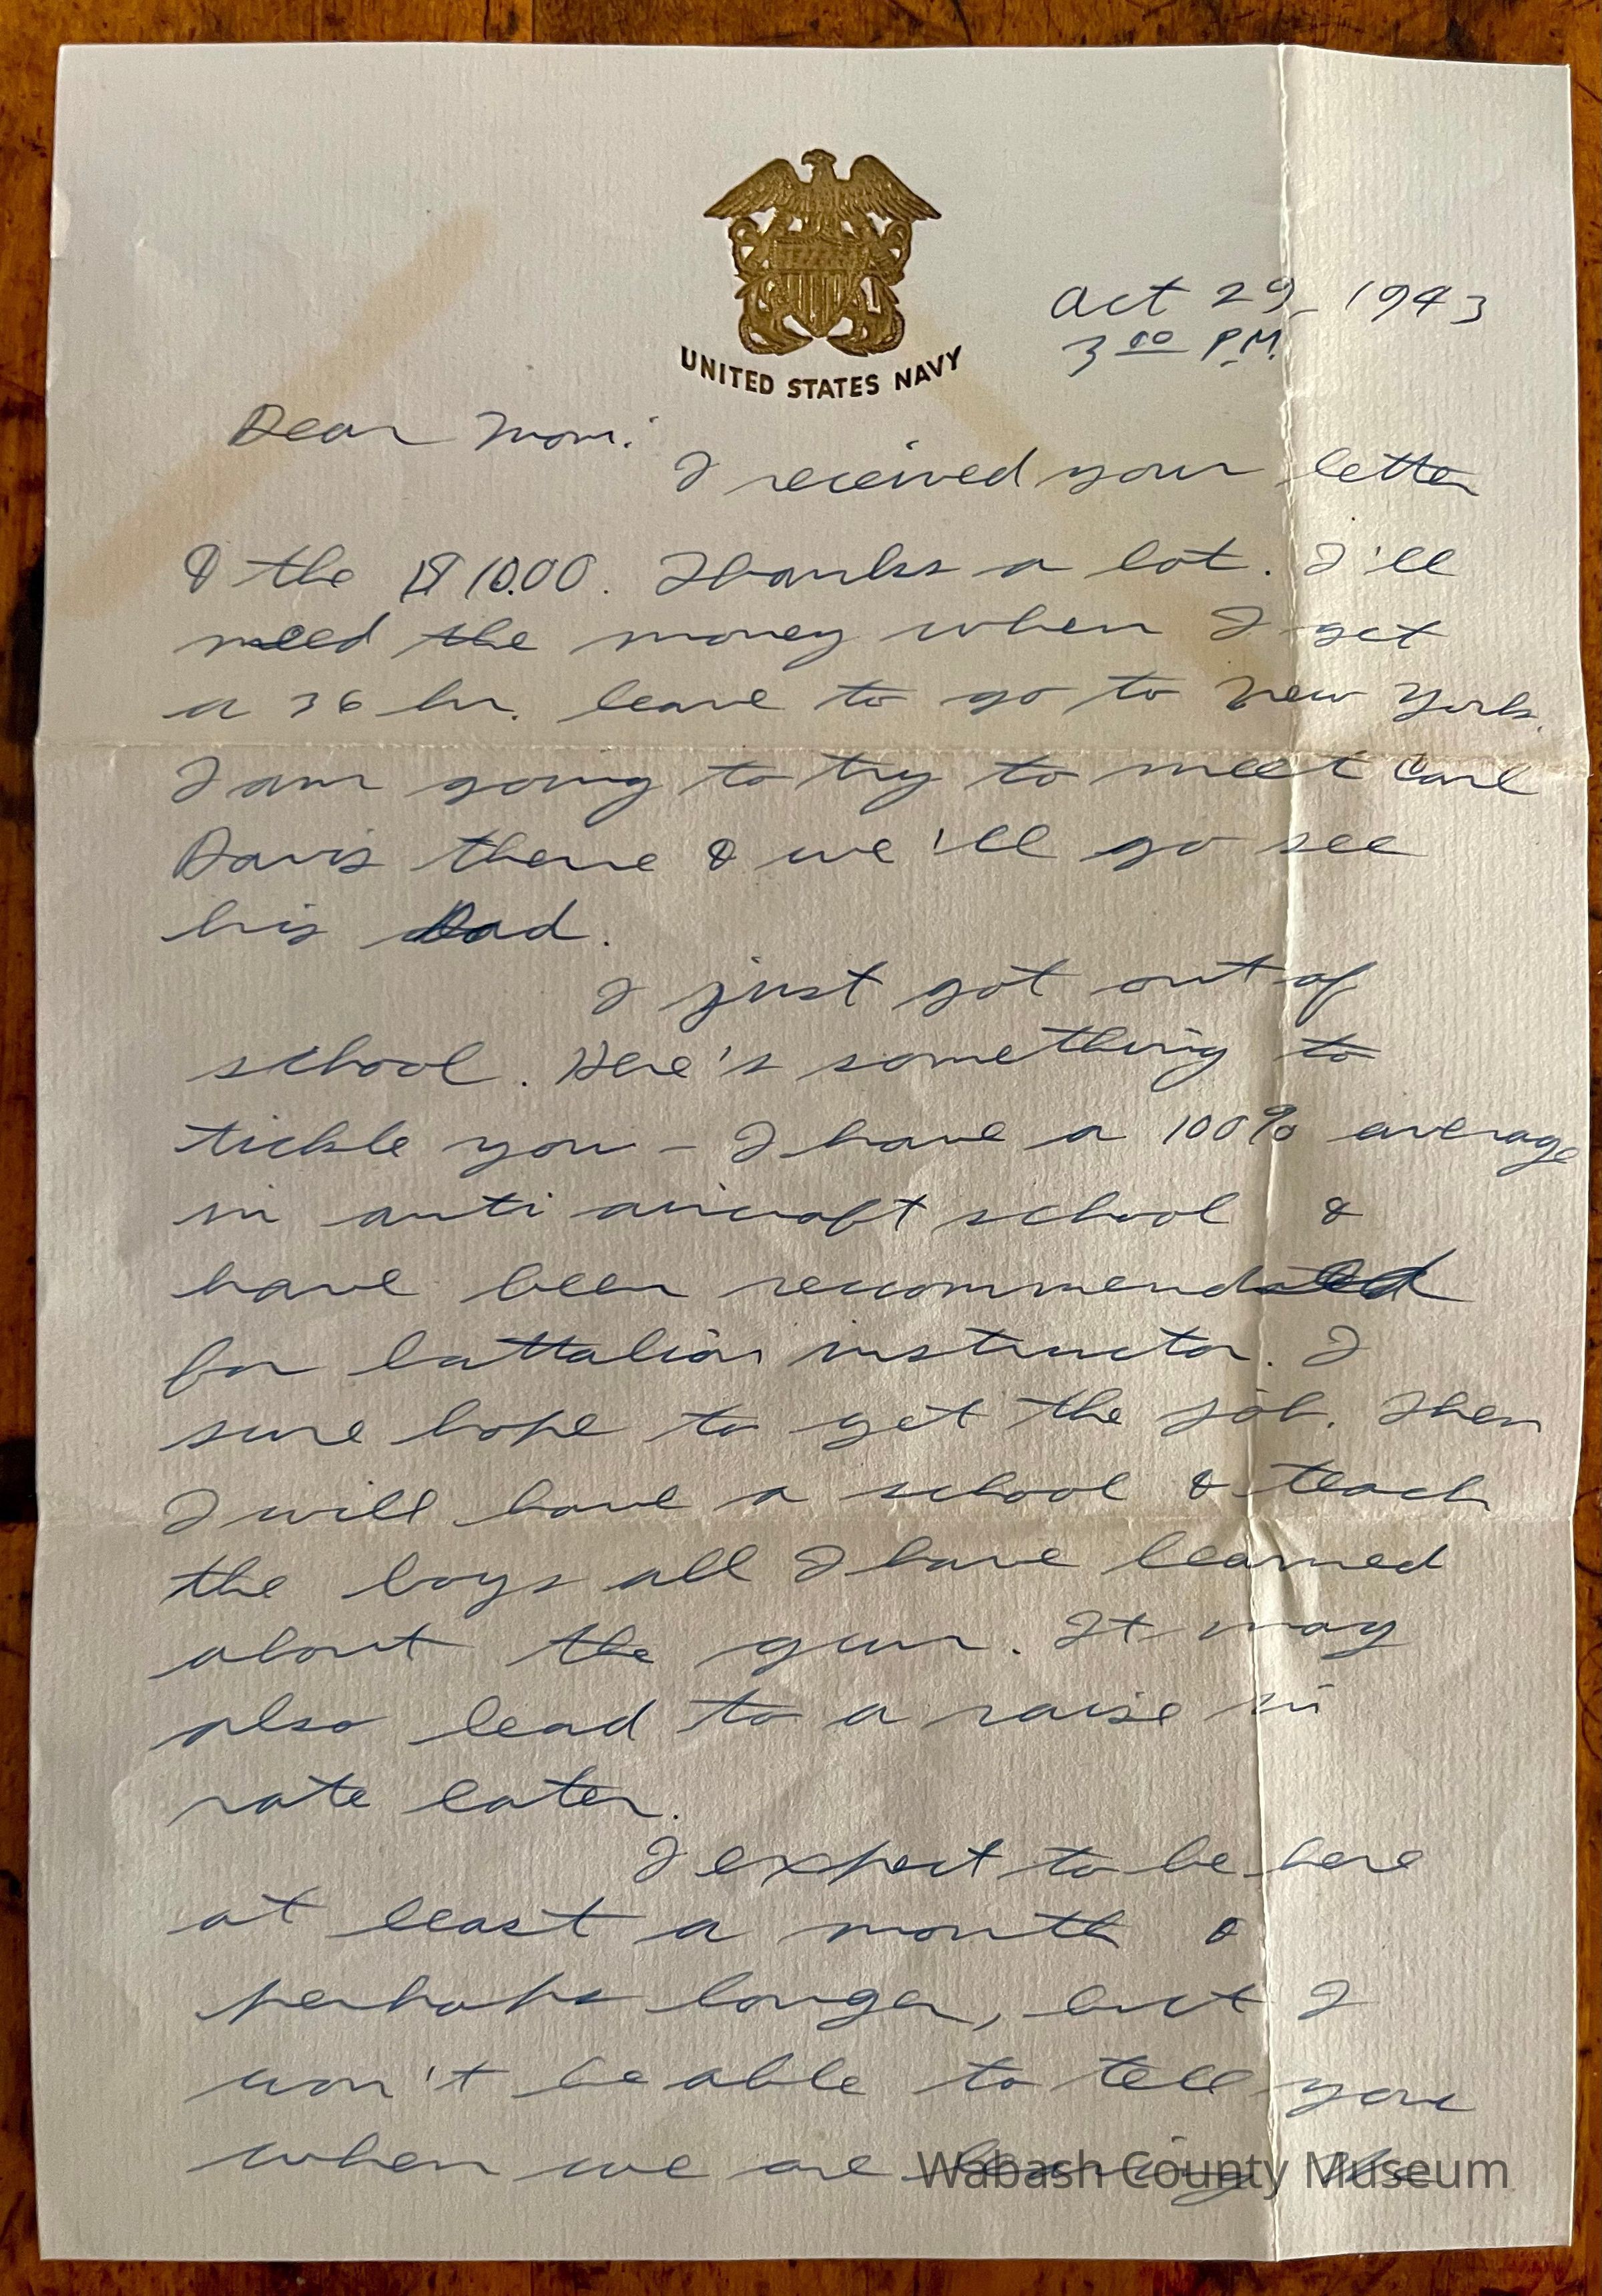 UNITED STATES NAVY
Oct 29, 1943
3 00 P.M.
Dear Mom:
I received your letter
& the $10.00. Thanks a lot. I'll
need the money when I get
a 36 hr. leave to go to New York.
I am going to try to meet Carl
Davis there & we'll go see
his Dad.
I just got out of
school. Here's something to
tickle you - I have a 100% average
in anti aircraft school &
have been recommended
for battalion instructor. I
sure hope to get the job. Then
I will have a school & teach
the boys all I have learned
about the gun. It may
also lead to a raise in
rate later.
I expect to be here
at least a month &
perhaps longer, but I
won't be able to tell you
when we are leaving
Wabash County Museum